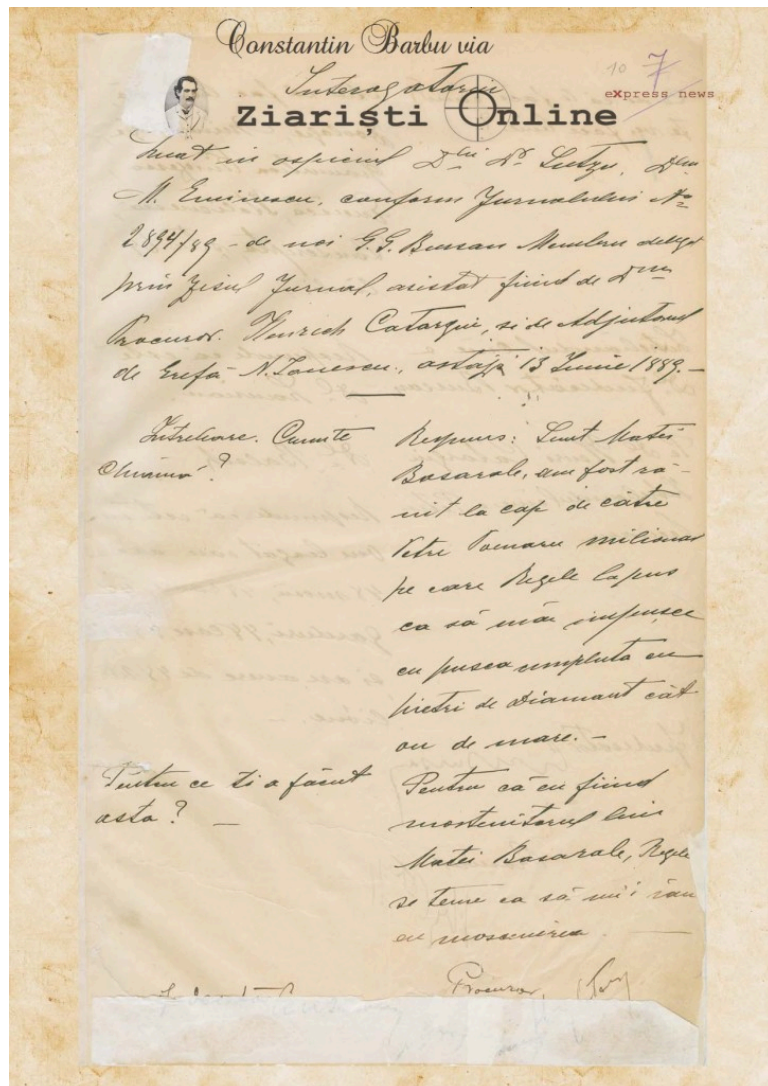 Constantin Barbu via
10 7
Interogatoriu
express news
Ziariști Online
Luat in ospiciul Dlui Dr Sutzu, Dlui
M. Eminescu, conform Jurnalului No
2894/89 - de noi G.G. Bursan Membru delegat
prin zisul Jurnal, asistat fiind de Dnu
Procuror. Henrich Catargiu, si de Adjutorul
de Grefă N. Ionescu, astăzi 13 Iunie 1889. -
Întrebare. Cum te
Chiamă?
Respuns: Sunt Matei
Basarab, am fost ră-
nit la cap de către
Petre Poenaru milionar
pe care Regele la pus
ca să mă impușce
cu pusca umpluta cu
pietri de Diamant cât
ou de mare. -
Pentru ce ti a făcut
asta? -
Pentru că eu fiind
mostenitorul lui
Matei Basarab, Regele
se teme ca să nu'i iau
eu moscenirea. -
Procuror,